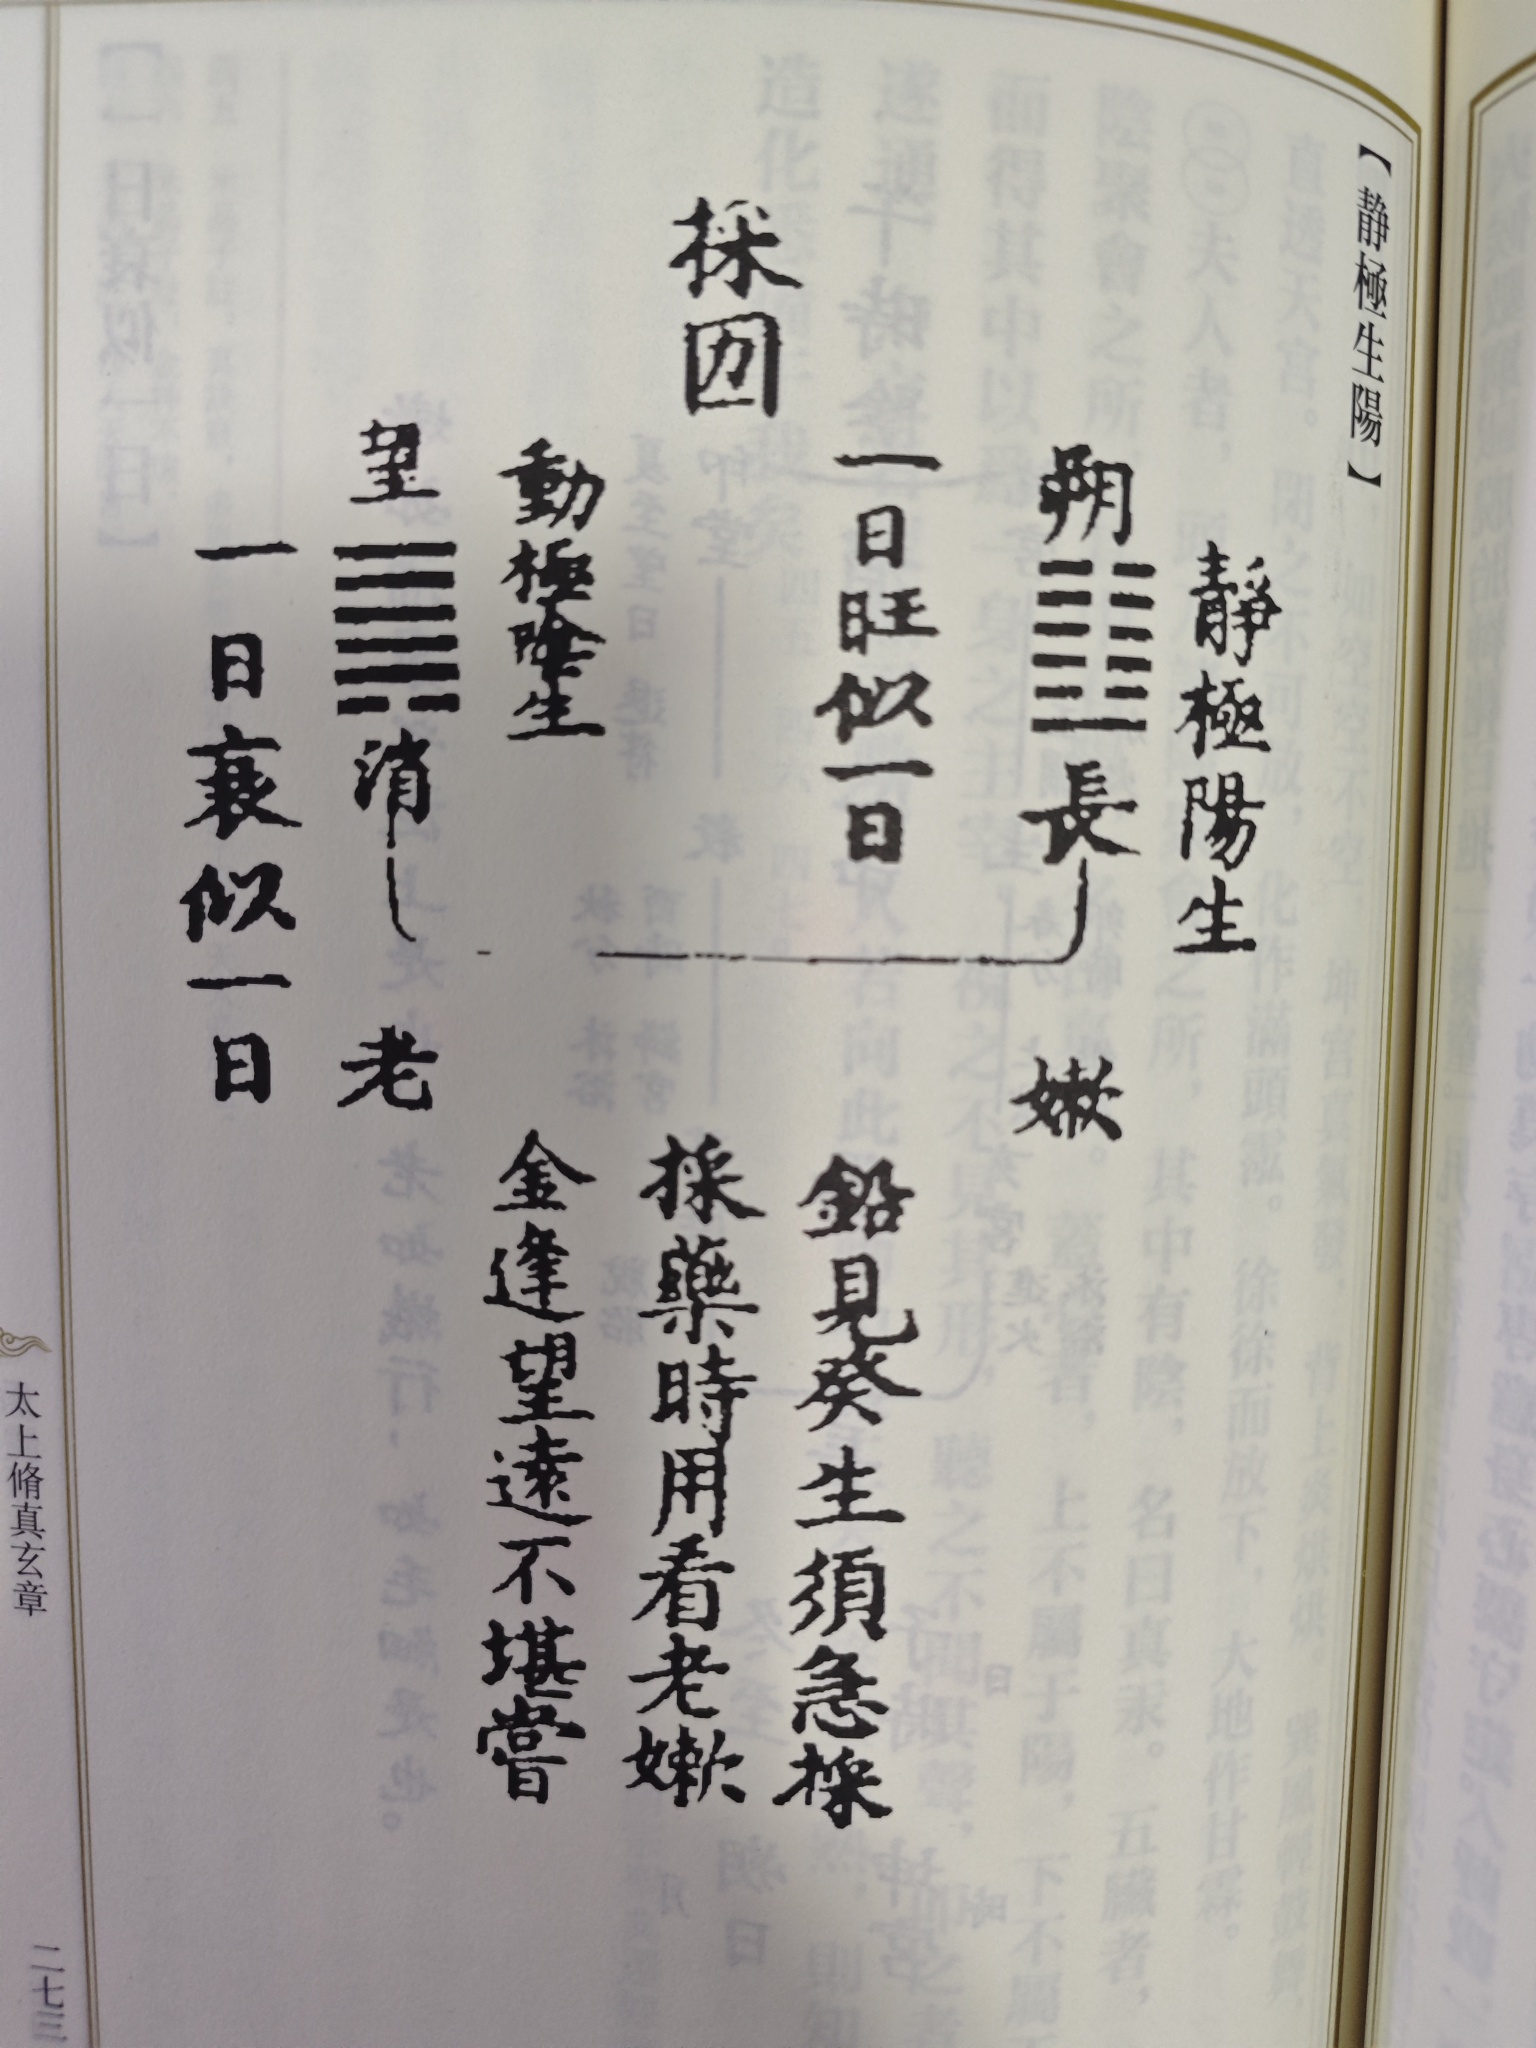 【靜極生陽】
靜極陽生
朔
長
嫩
一日旺似一日
採
動極陰生
望
消
老
一日衰似一日
鉛見癸生須急採
採藥時用看老嫩
金逢望遠不堪嘗
太上脩真玄章
二七三